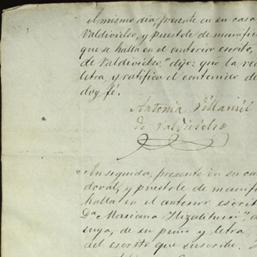 Al mismo dia, presente en su casa
Valdivielso, y puestole de manifie
que se halla en el anterior escrito,
de Valdivielso" dijo: que la re
letra, y ratifica el contenido de
doy fé.
Antonia Villamil
de Valdivielso
En seguida, presente en su ca
doval, y puestole de manif
halla en el anterior escrit
Dª Mariana
suya, de su puño y letra,
del escrito que suscribe.